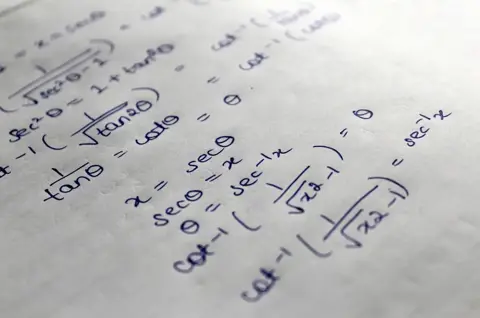 = x = secθ
(1/√sec²θ - 1) = cot
sec²θ = 1 + tan²θ
cot⁻¹(1/√tan2θ) = cot⁻¹(
1/tanθ = cotθ = cot⁻¹(cotθ
= θ
x = secθ
secθ = x
θ = sec⁻¹x
cot⁻¹(1/√x2-1) = θ
cot⁻¹(1/√x2-1) = sec⁻¹x